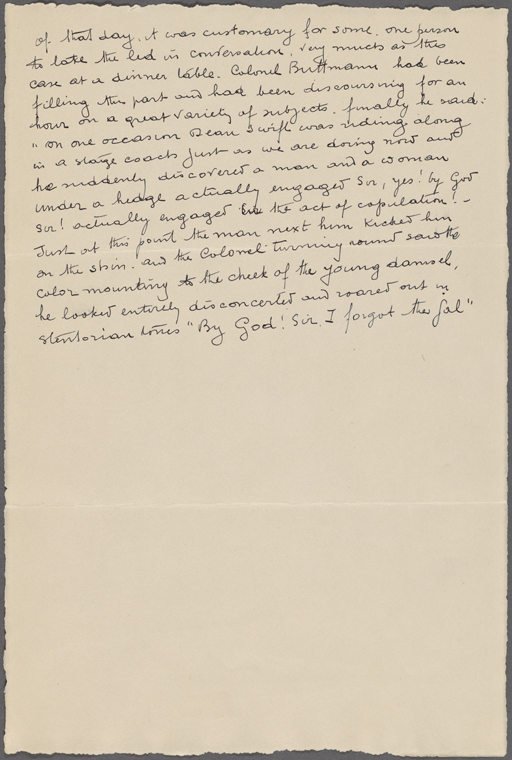 of that day, it was customary for some one person
to take the led in conversation, very much as this
case at a dinner table. Colonel Buttmann had been
filling this part and had been discoursing for an
hour on a great variety of subjects. finally he said:
"on one occasion Dean Swift was riding along
in a stage coach just as we are doing now and
he suddenly discovered a man and a woman
under a hedge actually engaged Sir, yes! by God
Sir! actually engaged in the act of copulation! -
Just at this point the man next him kicked him
on the shin. and the Colonel turning round saw the
color mounting to the cheek of the young damsel,
he looked entirely disconcerted and roared out in
stentorian tones "By God! Sir, I forgot the Gal"